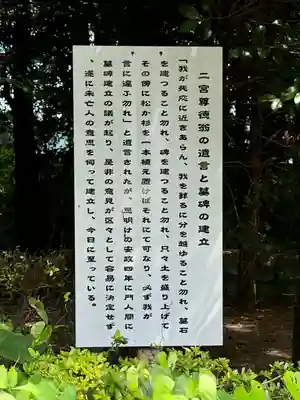 二宮尊徳翁の遺言と墓碑の建立
「我が死応に近きあらん、我を葬るに分を越ゆること勿れ、墓石
を建つること勿れ、碑を建つること勿れ、只々土を盛り上げて
その傍に松か杉を一本植え置けばそれにて可なり、必ず我が
言に違ふ勿れ」と遺言されたが、忌明けの安政四年に門人間に
墓碑建立の議が起り、是非の意見が区々として容易に決定せず
、遂に未亡人の意思を伺って建立し、今日に至っている。